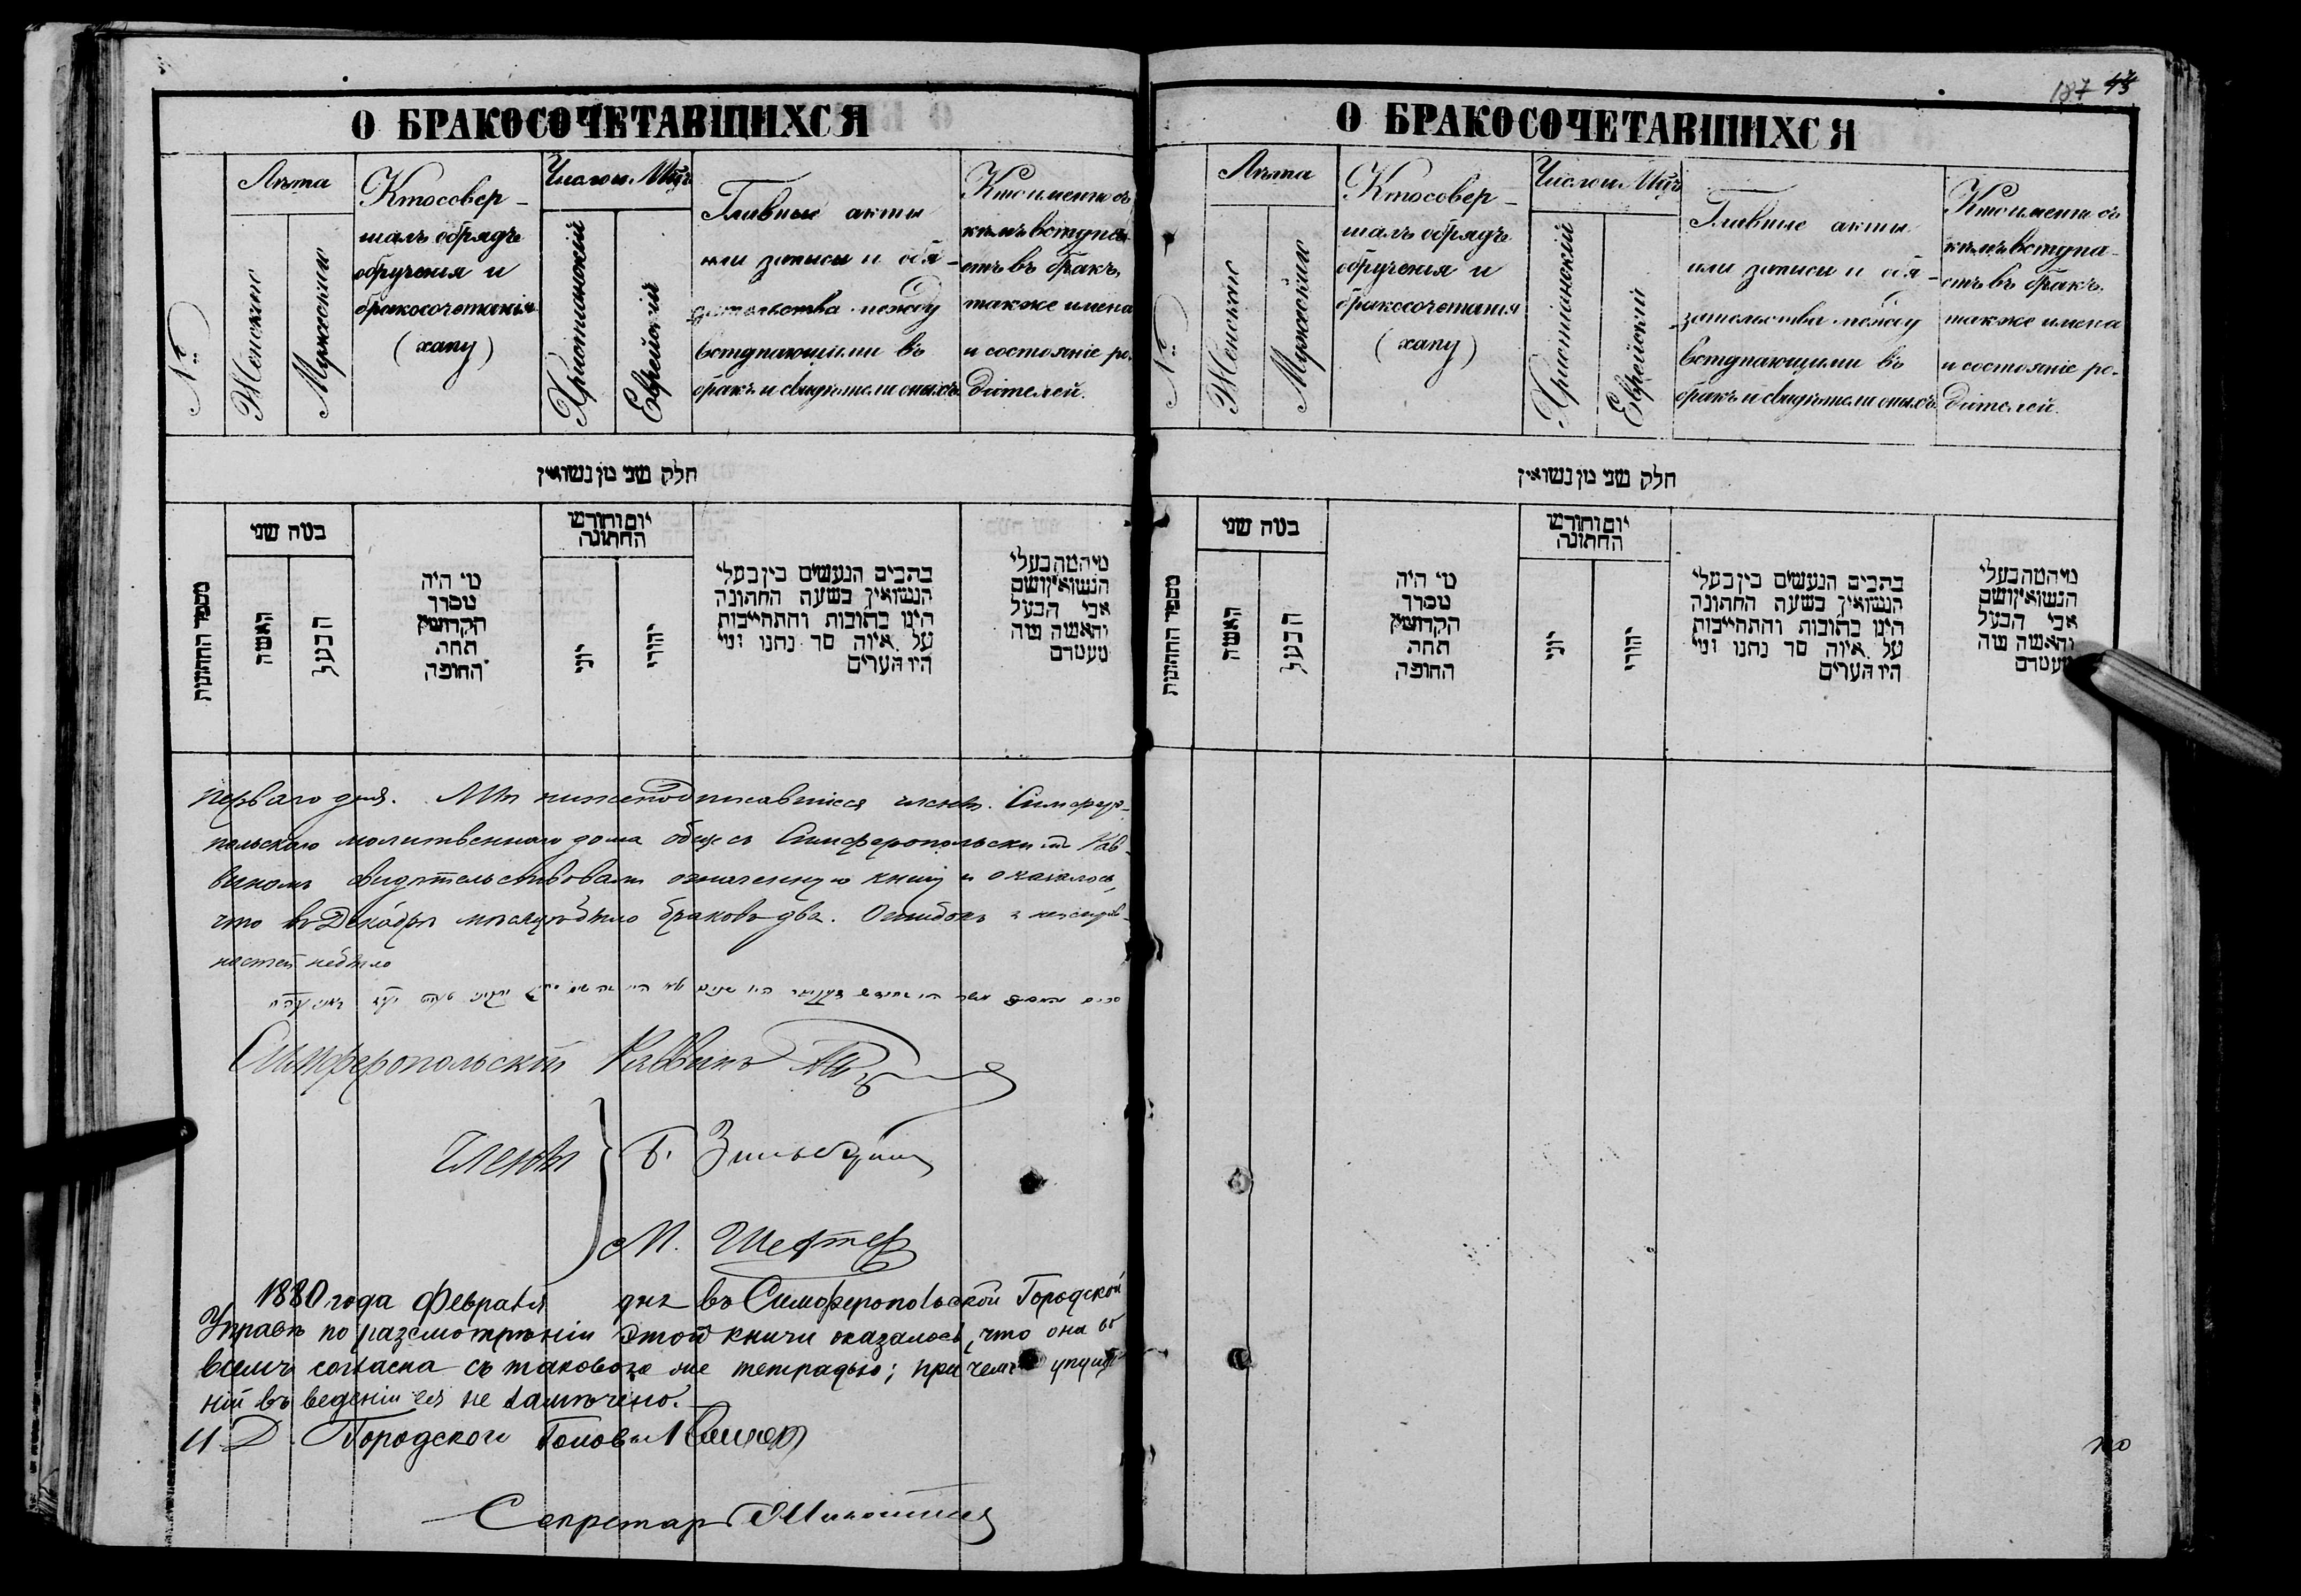 О БРАКОСОЧЕТАВШИХСЯ
№
Лѣта
Женскіе
Мужескіе
Кто совер-
шалъ обрядъ
обрученія и
бракосочетанія
(хапу)
Число и Мцъ
Христіанскій
Еврейскій
Главные акты
или записи и обя-
зательства между
вступающими въ
бракъ и свидѣтели оныхъ
Кто именно съ
кѣмъ вступа-
етъ въ бракъ,
также имена
и состояніе ро-
дителей.
חלק שני מן נשואין
מספר החתונות
במה שני
האשה
הבעל
מי היה
מסדר
הקדושין
תחת
החופה
יום וחודש
החתונה
יוני
יהודי
כתבים הנעשים בין בעלי
הנשואין בשעה החתונה
היינו כתובות והתחייבות
על איזה סך נתנו ומי
היו העדים
מי המה בעלי
הנשואין ושם
אבי הבעל
והאשה מה
מעמדם
перваго дня. Мы нижеподписавшіеся члены Симферо-
польскаго молитвеннаго дома обще съ Симферопольскимъ Рав-
виномъ свидѣтельствовали означенную книгу и оказалось,
что въ Декабрѣ мѣсяцѣ было браковъ два. Ошибокъ и неисправ-
ностей небыло
Симферопольскій Раввинъ
Члены
Б. Зильбер
М. Шефтер
1880 года Февраля дня въ Симферопольской Городской
Управѣ по разсмотрѣніи этой книги оказалось, что она во
всемъ согласна съ таковою же тетрадью; при чемъ упуще-
ній въ веденіи ея не замѣчено.
И. Д. Городскаго Головы
Секретарь
187 43
О БРАКОСОЧЕТАВШИХСЯ
№
Лѣта
Женскіе
Мужескіе
Кто совер-
шалъ обрядъ
обрученія и
бракосочетанія
(хапу)
Число и Мцъ
Христіанскій
Еврейскій
Главные акты
или записи и обя-
зательства между
вступающими въ
бракъ и свидѣтели оныхъ
Кто именно съ
кѣмъ вступа-
етъ въ бракъ,
также имена
и состояніе ро-
дителей.
חלק שני מן נשואין
מספר החתונות
במה שני
האשה
הבעל
מי היה
מסדר
הקדושין
תחת
החופה
יום וחודש
החתונה
יוני
יהודי
כתבים הנעשים בין בעלי
הנשואין בשעה החתונה
היינו כתובות והתחייבות
על איזה סך נתנו ומי
היו העדים
מי המה בעלי
הנשואין ושם
אבי הבעל
והאשה מה
מעמדם